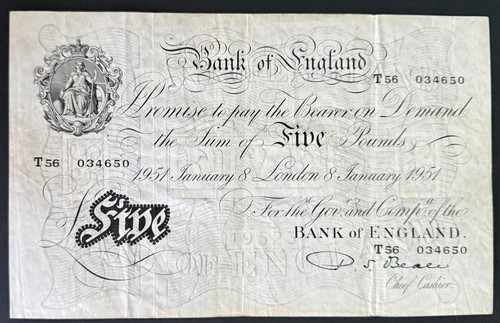 Bank of England
T56 034650
I Promise to pay the Bearer on Demand
the Sum of Five Pounds
T56 034650
1951 January 8 London 8 January 1951
For the Govr. and Compa. of the
£Five
BANK of ENGLAND.
T56 034650
P. S. Beale
Chief Cashier.